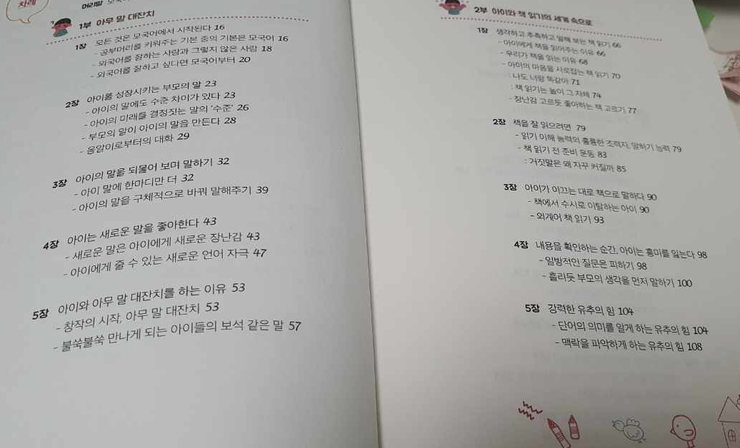 차례
머리말
1부 아무 말 대잔치
1장 모든 것은 모국어에서 시작된다 16
- 공부머리를 키워주는 기본 중의 기본은 모국어 16
- 외국어를 잘하는 사람과 그렇지 않은 사람 18
- 외국어를 잘하고 싶다면 모국어부터 20
2장 아이를 성장시키는 부모의 말 23
- 아이의 말에도 수준 차이가 있다 23
- 아이의 미래를 결정짓는 말의 '수준' 26
- 부모의 말이 아이의 말을 만든다 28
- 옹알이로부터의 대화 29
3장 아이의 말을 되물어 보며 말하기 32
- 아이 말에 한마디만 더 32
- 아이의 말을 구체적으로 바꿔 말해주기 39
4장 아이는 새로운 말을 좋아한다 43
- 새로운 말은 아이에게 새로운 장난감 43
- 아이에게 줄 수 있는 새로운 언어 자극 47
5장 아이와 아무 말 대잔치를 하는 이유 53
- 창작의 시작, 아무 말 대잔치 53
- 불쑥불쑥 만나게 되는 아이들의 보석 같은 말 57
2부 아이와 책 읽기의 세계 속으로
1장 생각하고 추측하고 말해 보는 책 읽기 66
- 아이에게 책을 읽어주는 이유 66
- 우리가 책을 읽는 이유 68
- 아이의 마음을 사로잡는 책 읽기 70
: 나도 너랑 똑같아 71
: 책 읽기는 놀이 그 자체 74
- 장난감 고르듯 좋아하는 책 고르기 77
2장 책을 잘 읽으려면 79
- 읽기 이해 능력의 훌륭한 조력자, 말하기 능력 79
- 책 읽기 전 준비 운동 83
: 거짓말은 왜 자꾸 커질까 85
3장 아이가 이끄는 대로 책으로 말하다 90
- 책에서 수시로 이탈하는 아이 90
- 외계어 책 읽기 93
4장 내용을 확인하는 순간, 아이는 흥미를 잃는다 98
- 일방적인 질문은 피하기 98
- 흘리듯 부모의 생각을 먼저 말하기 100
5장 강력한 유추의 힘 104
- 단어의 의미를 알게 하는 유추의 힘 104
- 맥락을 파악하게 하는 유추의 힘 108